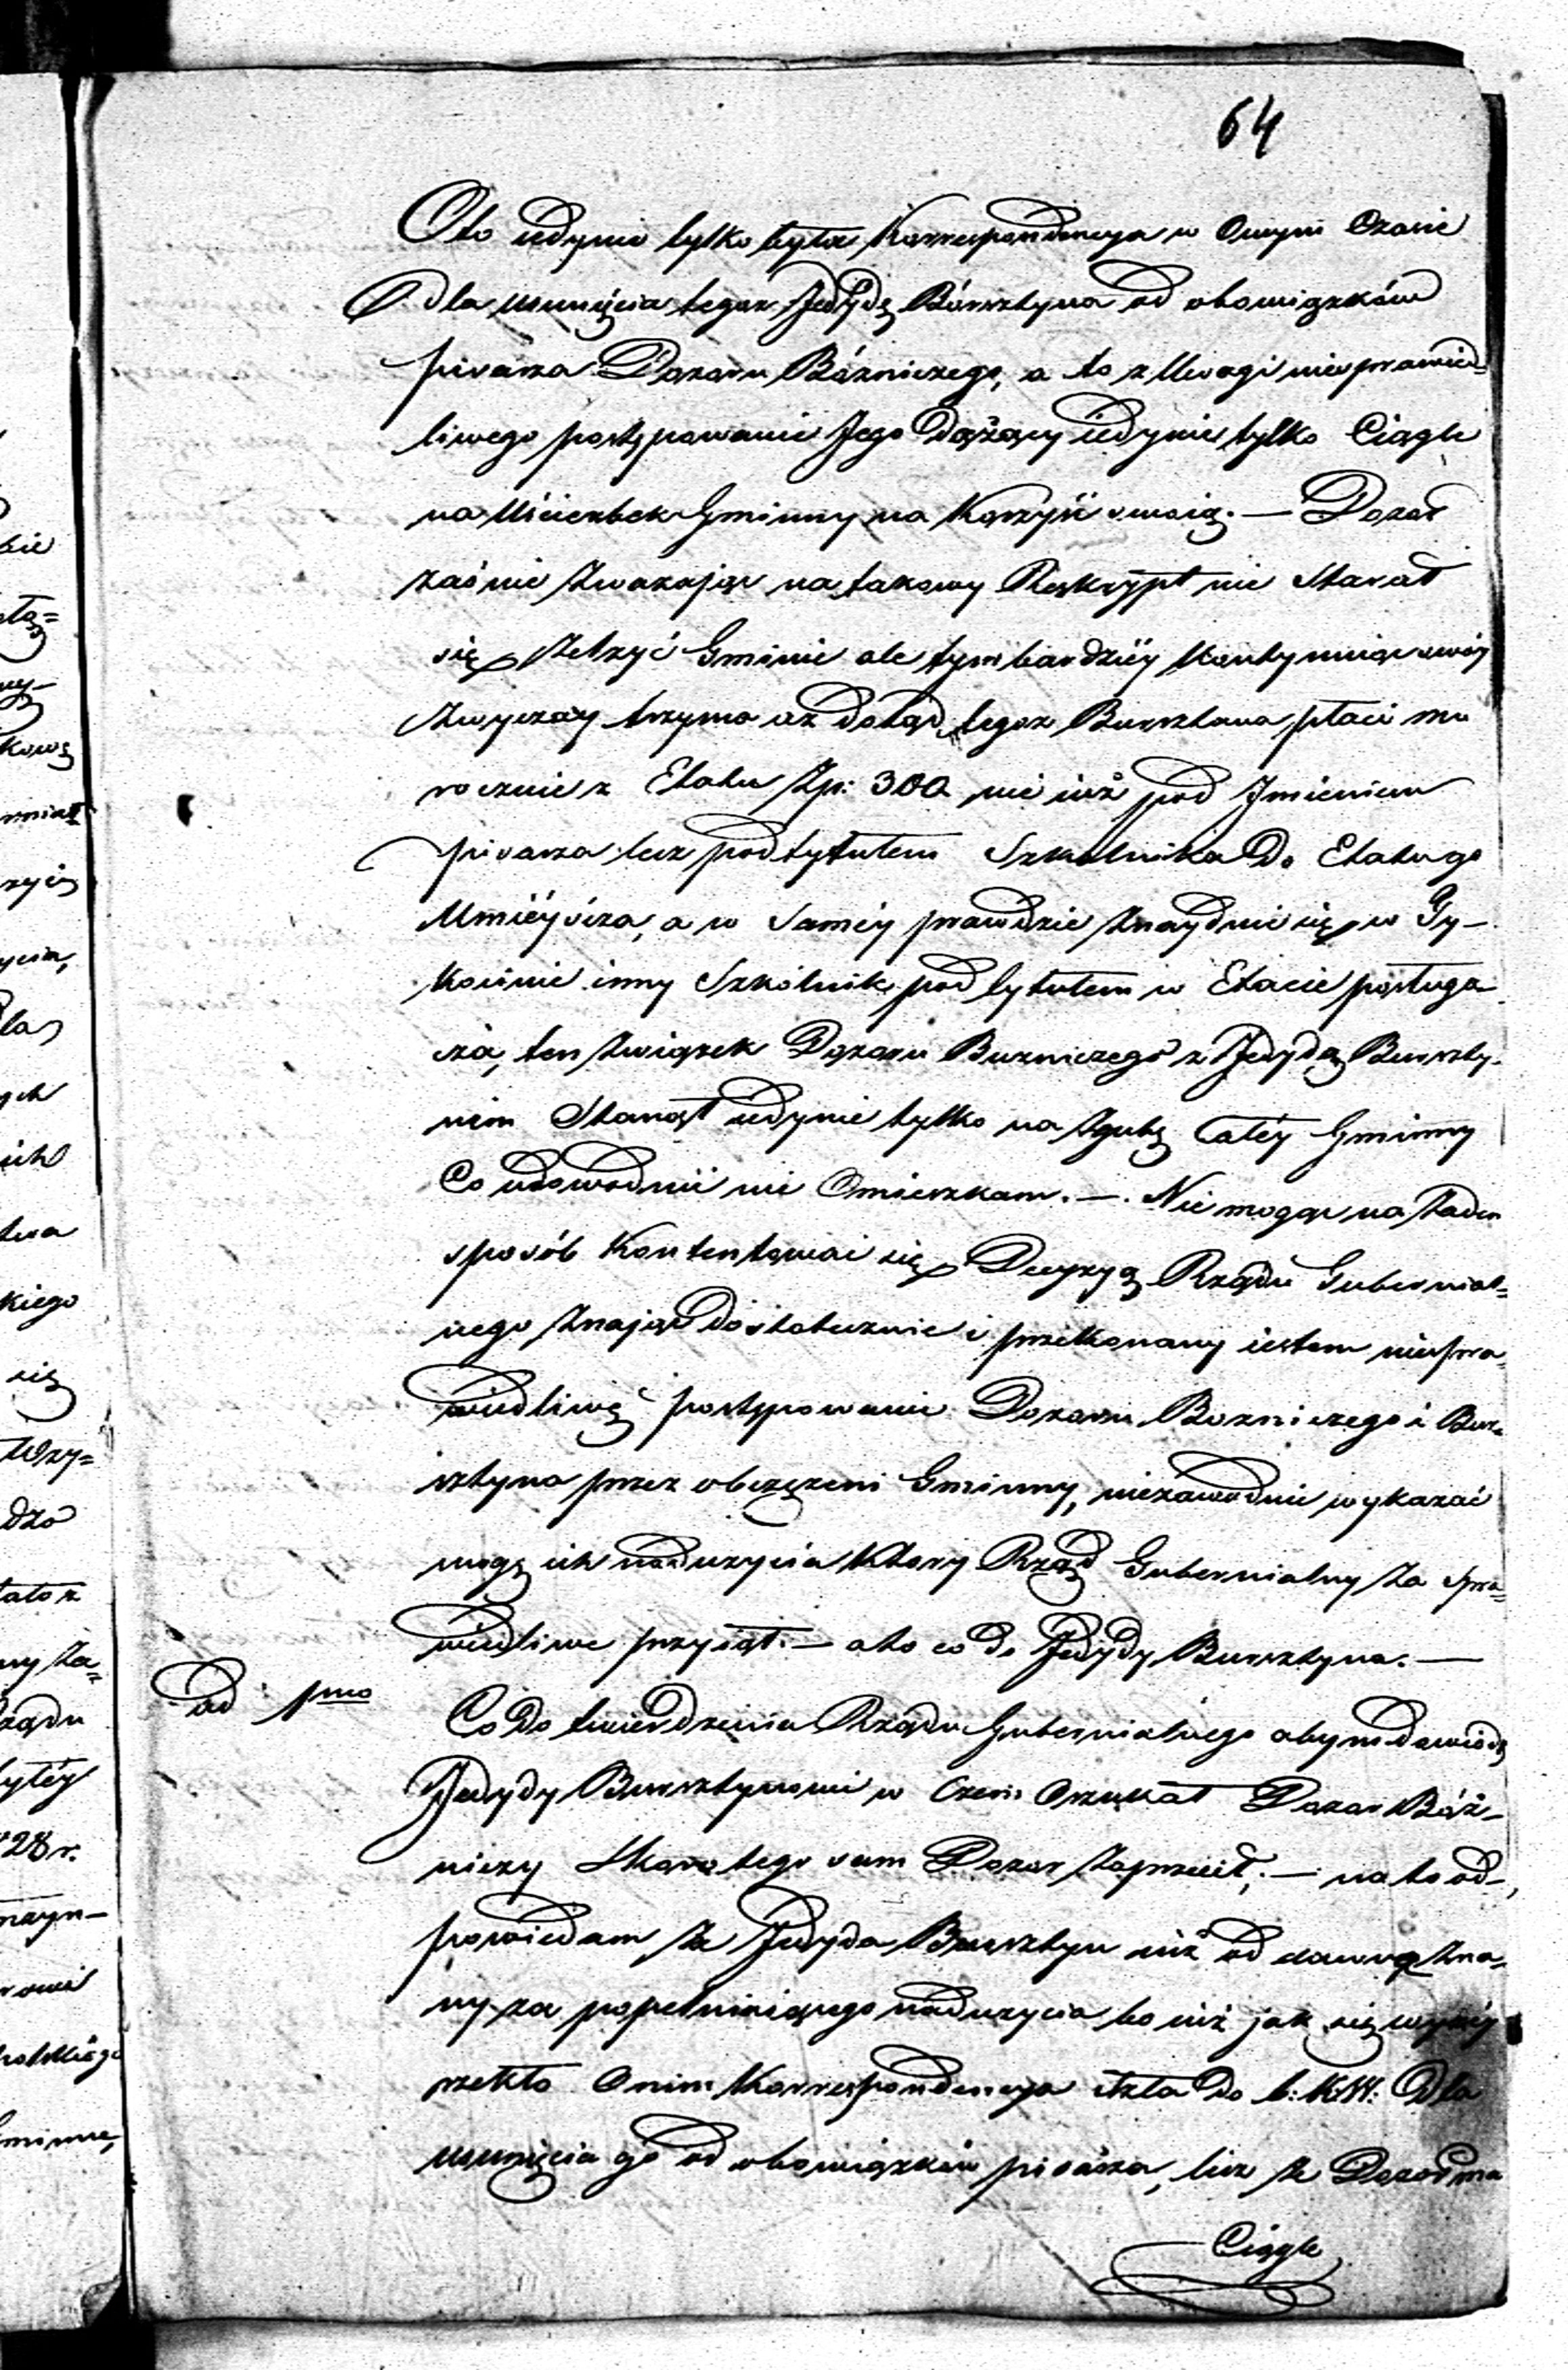 64
Oto iedynie tylko była Korrespondencya w Owym Czasie
dla usunięcia tegoż Jedydę Bursztyna od obowiązków
pisarza Dozoru Bóżniczego, a to z Uwagi niesprawied=
liwego postępowanie Jego dążący iedynie tylko Ciągle
na Uścierbek Gminny na Korzyść swoią. — Dozor
zaś nie zwarzając na takowy Reskrypt nie Starał
się Ulżyć Gminie ale tym bardziéy kontynuiąc swóy
zwyczay trzyma aż dotąd tegoż Bursztana płaci mu
rocznie z Etatu Zp: 300 nie iuż pod Jmieniem
pisarza lecz pod tytułem Szkolnika do Etatu go
Umieyścza, a w Saméy prawdzie znayduie się w Ty-
kocinie inny Szkólnik pod tytułem w Etacie posługa
cza, ten związek Dozoru Buzniczego z Jedydą Burszty-
nem Stanął iedynie tylko na zgubę Całéy Gminny
Co udowodnić nie Omieszkam. —. Nie mogąc na żaden
sposób kontentować się Decyzyą Rządu Gubernial=
nego znając dostatecznie i przekonany iestem niespra-
wiedliwę postępowanie Dozoru Bozniczego i Bur-
sztyna przez obczęzeni Gminny, niezawodnie wykazać
mogę ich nadużycia który Rząd Gubernialny za spra=
wiedliwe przyiął. — a to co do Jedydy Bursztyna. —
ad 1mo
Co do twierdzenia Rządu Gubernialnego abym dowiodł
Jedydy Bursztynowi w czem Oszukał Dozor Bóż-
niczy skoro tego sam Dozor zaprzeczł; — na to od-
powiedam że Jedyda Bursztyn iuż od dawna zna-
ny za popełniniącego nadużycia bo iuż jak się wyżéy
rzekło Onim Korrespondencya iszła do b: K:W: Dla
usunięcia go od obowiązków pisarza, lecz że Dozor ma
Ciągle